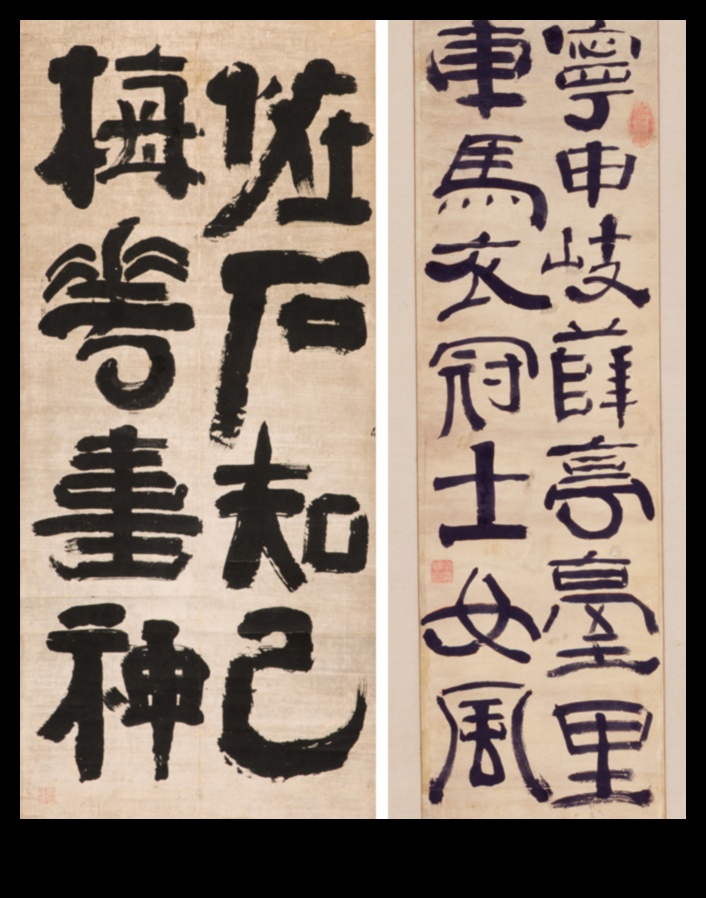 佐石知己
梅花畫神
寧申岐薛亭臺里
車馬衣冠士女風